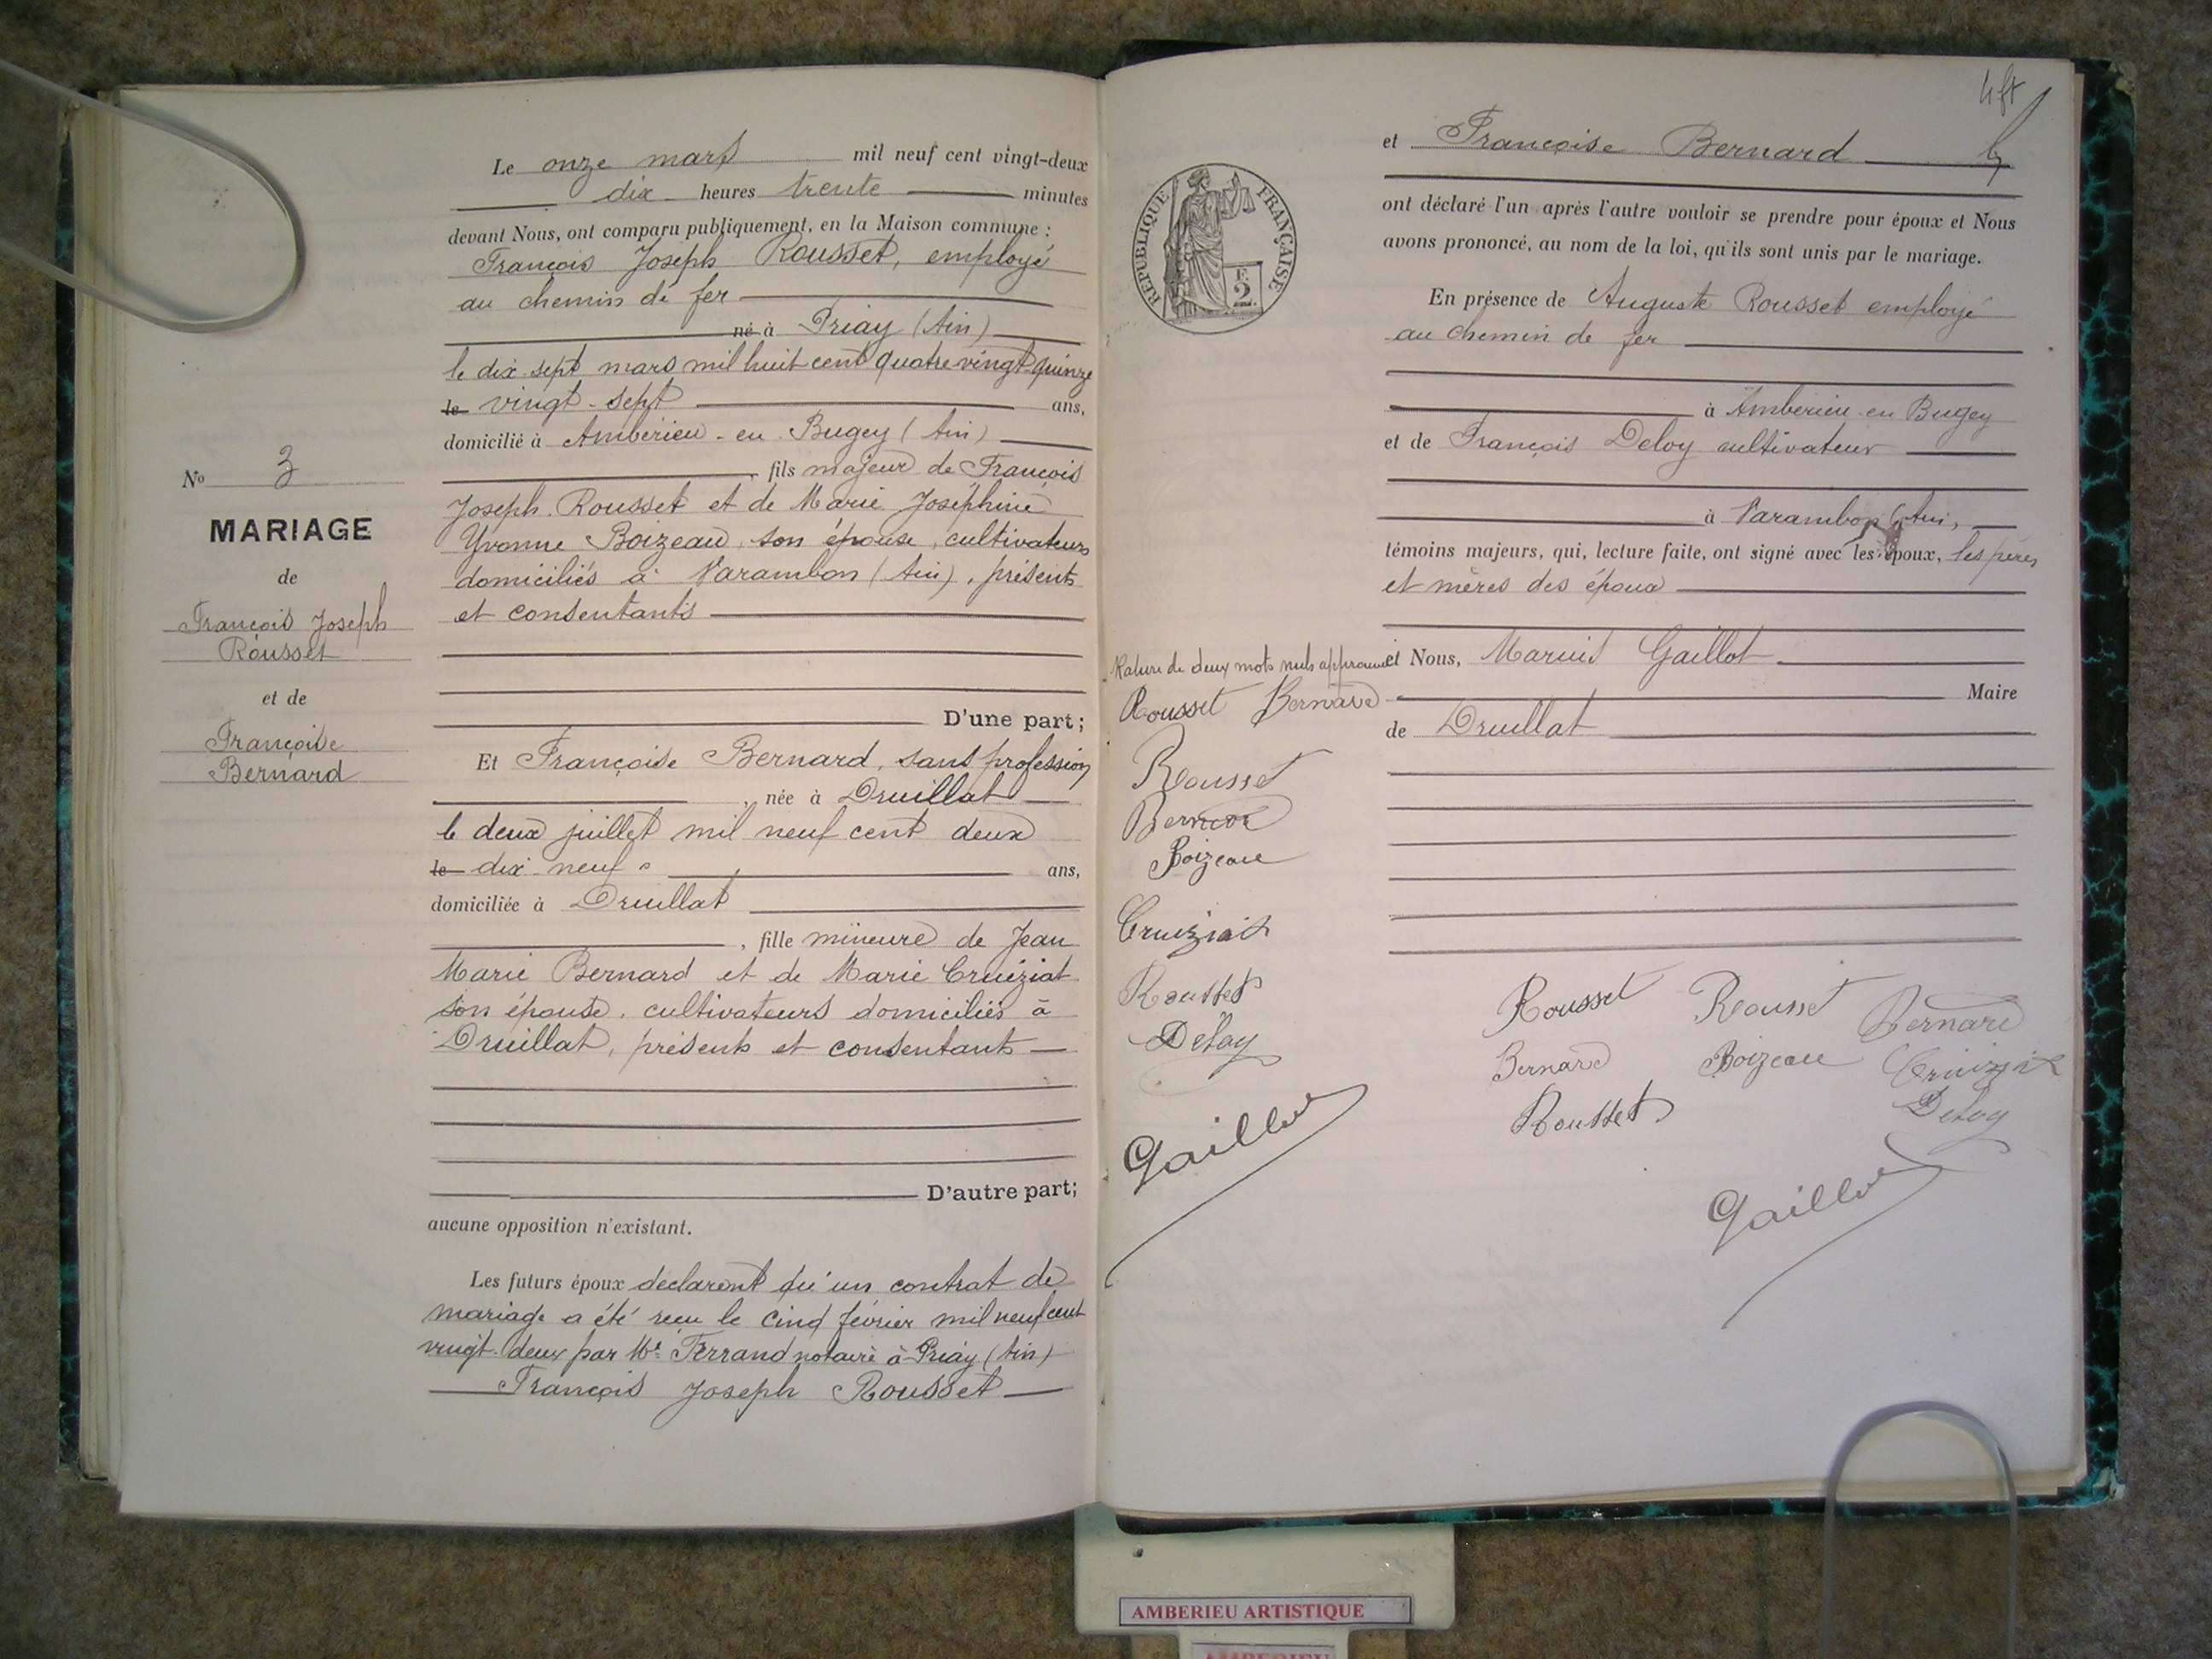 Le onze mars mil neuf cent vingt-deux
dix heures trente minutes
devant Nous, ont comparu publiquement, en la Maison commune :
François Joseph Rousset, employé
au chemin de fer
né à Priay (Ain)
le dix-sept mars mil huit cent quatre vingt quinze
le vingt-sept ans,
domicilié à Ambérieu-en-Bugey (Ain)
fils majeur de François
Joseph Rousset et de Marie Joséphine
Yvonne Boizeau, son épouse, cultivateurs
domiciliés à Varambon (Ain), présents
et consentants
D'une part;
Nº 3
MARIAGE
de
François Joseph
Rousset
et de
Françoise
Bernard
Et Françoise Bernard, sans profession
, née à Druillat
le deux juillet mil neuf cent deux
le dix-neuf ans,
domiciliée à Druillat
, fille mineure de Jean
Marie Bernard et de Marie Cruiziat
son épouse, cultivateurs domiciliés à
Druillat, présents et consentants
D'autre part;
aucune opposition n'existant.
Les futurs époux déclarent qu'un contrat de
mariage a été reçu le cinq février mil neuf cent
vingt-deux par Me Ferrand notaire à Priay (Ain)
François Joseph Rousset
et Françoise Bernard
ont déclaré l'un après l'autre vouloir se prendre pour époux et Nous
avons prononcé, au nom de la loi, qu'ils sont unis par le mariage.
RÉPUBLIQUE FRANÇAISE
2
En présence de Auguste Rousset employé
au chemin de fer
à Ambérieu-en-Bugey
et de François Deloy cultivateur
à Varambon (Ain,
témoins majeurs, qui, lecture faite, ont signé avec les époux, les pères
et mères des époux
et Nous, Marius Gaillot
Maire
de Druillat
Rature de deux mots nuls approuvée
Rousset Bernard
Rousset
Bernard
Boizeau
Cruiziat
Rousset
Deloy
Gaillot
Rousset Rousset Bernard
Bernard Boizeau Cruiziat
Rousset Deloy
Gaillot
AMBERIEU ARTISTIQUE
AMBERIEU